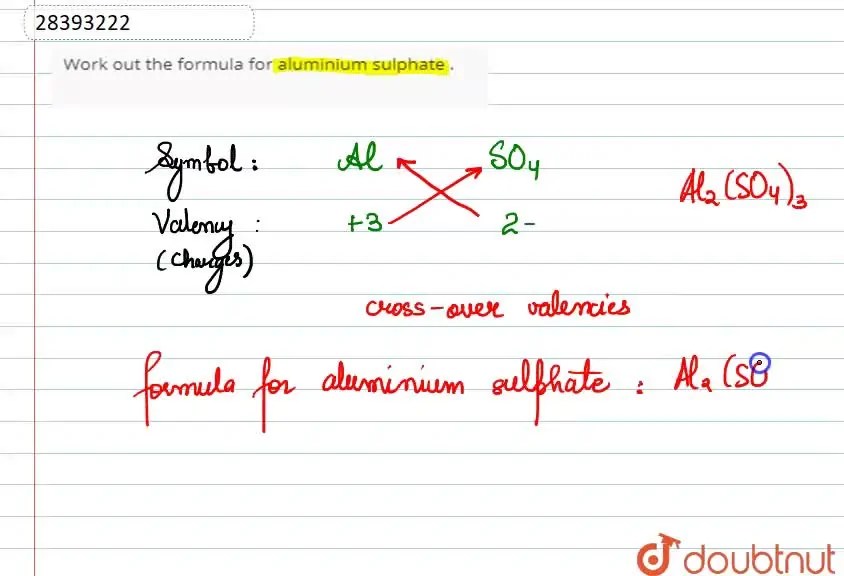 28393222
Work out the formula for aluminium sulphate.
Symbol : Al SO4
Al2(SO4)3
Valency : +3 2-
(Charges)
cross-over valencies
formula for aluminium sulphate : Al2 (SO
doubtnut